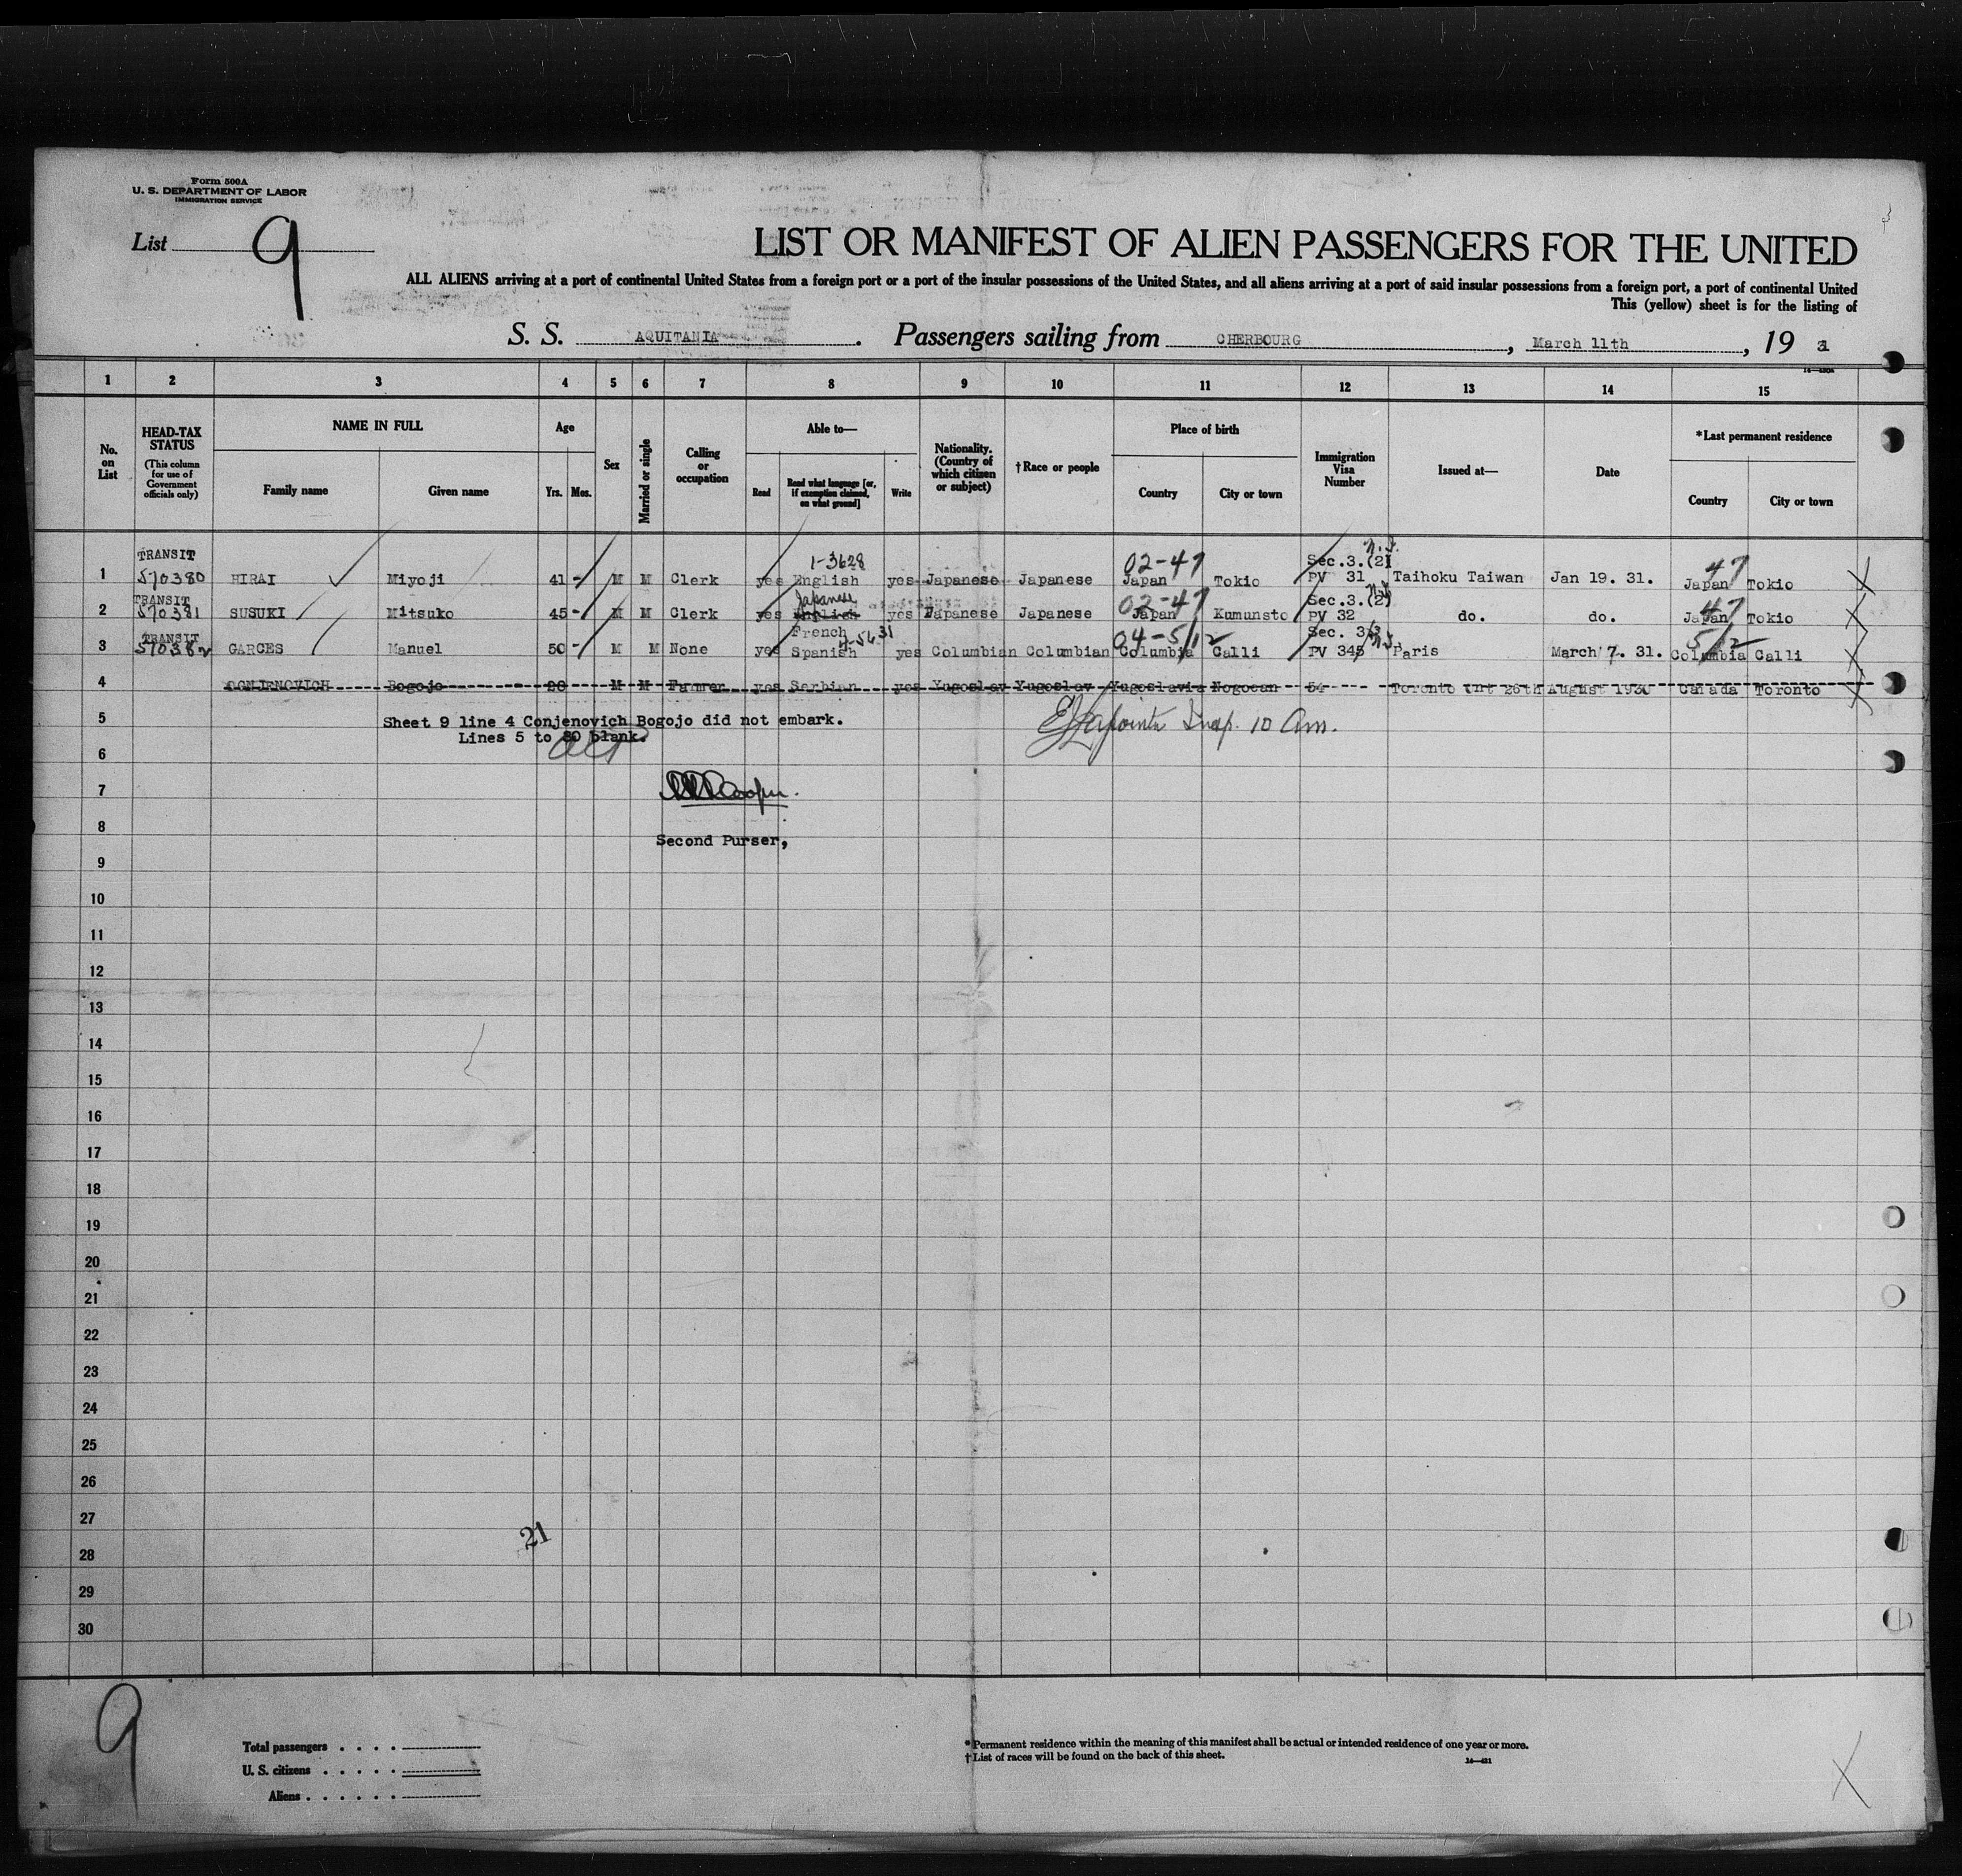 Form 500A
U. S. DEPARTMENT OF LABOR
IMMIGRATION SERVICE
List 9
LIST OR MANIFEST OF ALIEN PASSENGERS FOR THE UNITED
ALL ALIENS arriving at a port of continental United States from a foreign port or a port of the insular possessions of the United States, and all aliens arriving at a port of said insular possessions from a foreign port, a port of continental United
This (yellow) sheet is for the listing of
S. S. AQUITANIA. Passengers sailing from CHERBOURG, March 11th, 19 31
1 2 3 4 5 6 7 8 9 10 11 12 13 14 15
No. on List
HEAD-TAX STATUS (This column for use of Government officials only)
NAME IN FULL
Family name
Given name
Age
Yrs. Mos.
Sex
Married or single
Calling or occupation
Able to—
Read
Read what language [or, if exemption claimed, on what ground]
Write
Nationality. (Country of which citizen or subject)
†Race or people
Place of birth
Country
City or town
Immigration Visa Number
Issued at—
Date
*Last permanent residence
Country
City or town
TRANSIT 1-3628 02-47 Sec.3.(2) n.j. 47
1 570380 HIRAI Miyoji 41 - M M Clerk yes English yes Japanese Japanese Japan Tokio PV 31 Taihoku Taiwan Jan 19. 31. Japan Tokio
TRANSIT Japanese 02-47 Sec.3.(2) 47
2 570381 SUSUKI Mitsuko 45 - M M Clerk yes English yes Japanese Japanese Japan Kumunsto PV 32 do. do. Japan Tokio
TRANSIT French 04-5/12 Sec. 3 5/12
3 570382 GARCES Manuel 50 - M M None yes Spanish yes Columbian Columbian Columbia Calli PV 345 Paris March 7. 31. Columbia Calli
4 CONJENOVICH Bogojo M M Farmer yes Serbian yes Yugoslav Yugoslav Yugoslavia 54 Toronto Ont 26th August 1930 Canada Toronto
5 Sheet 9 line 4 Conjenovich Bogojo did not embark.
Lines 5 to 30 blank.
Insp. 10 Am.
6
7 Cooper.
8 Second Purser,
9
10
11
12
13
14
15
16
17
18
19
20
21
22
23
24
25
26
27
21
28
29
30
9
Total passengers . . . .
U. S. citizens . . . . .
Aliens . . . . . .
*Permanent residence within the meaning of this manifest shall be actual or intended residence of one year or more.
†List of races will be found on the back of this sheet.